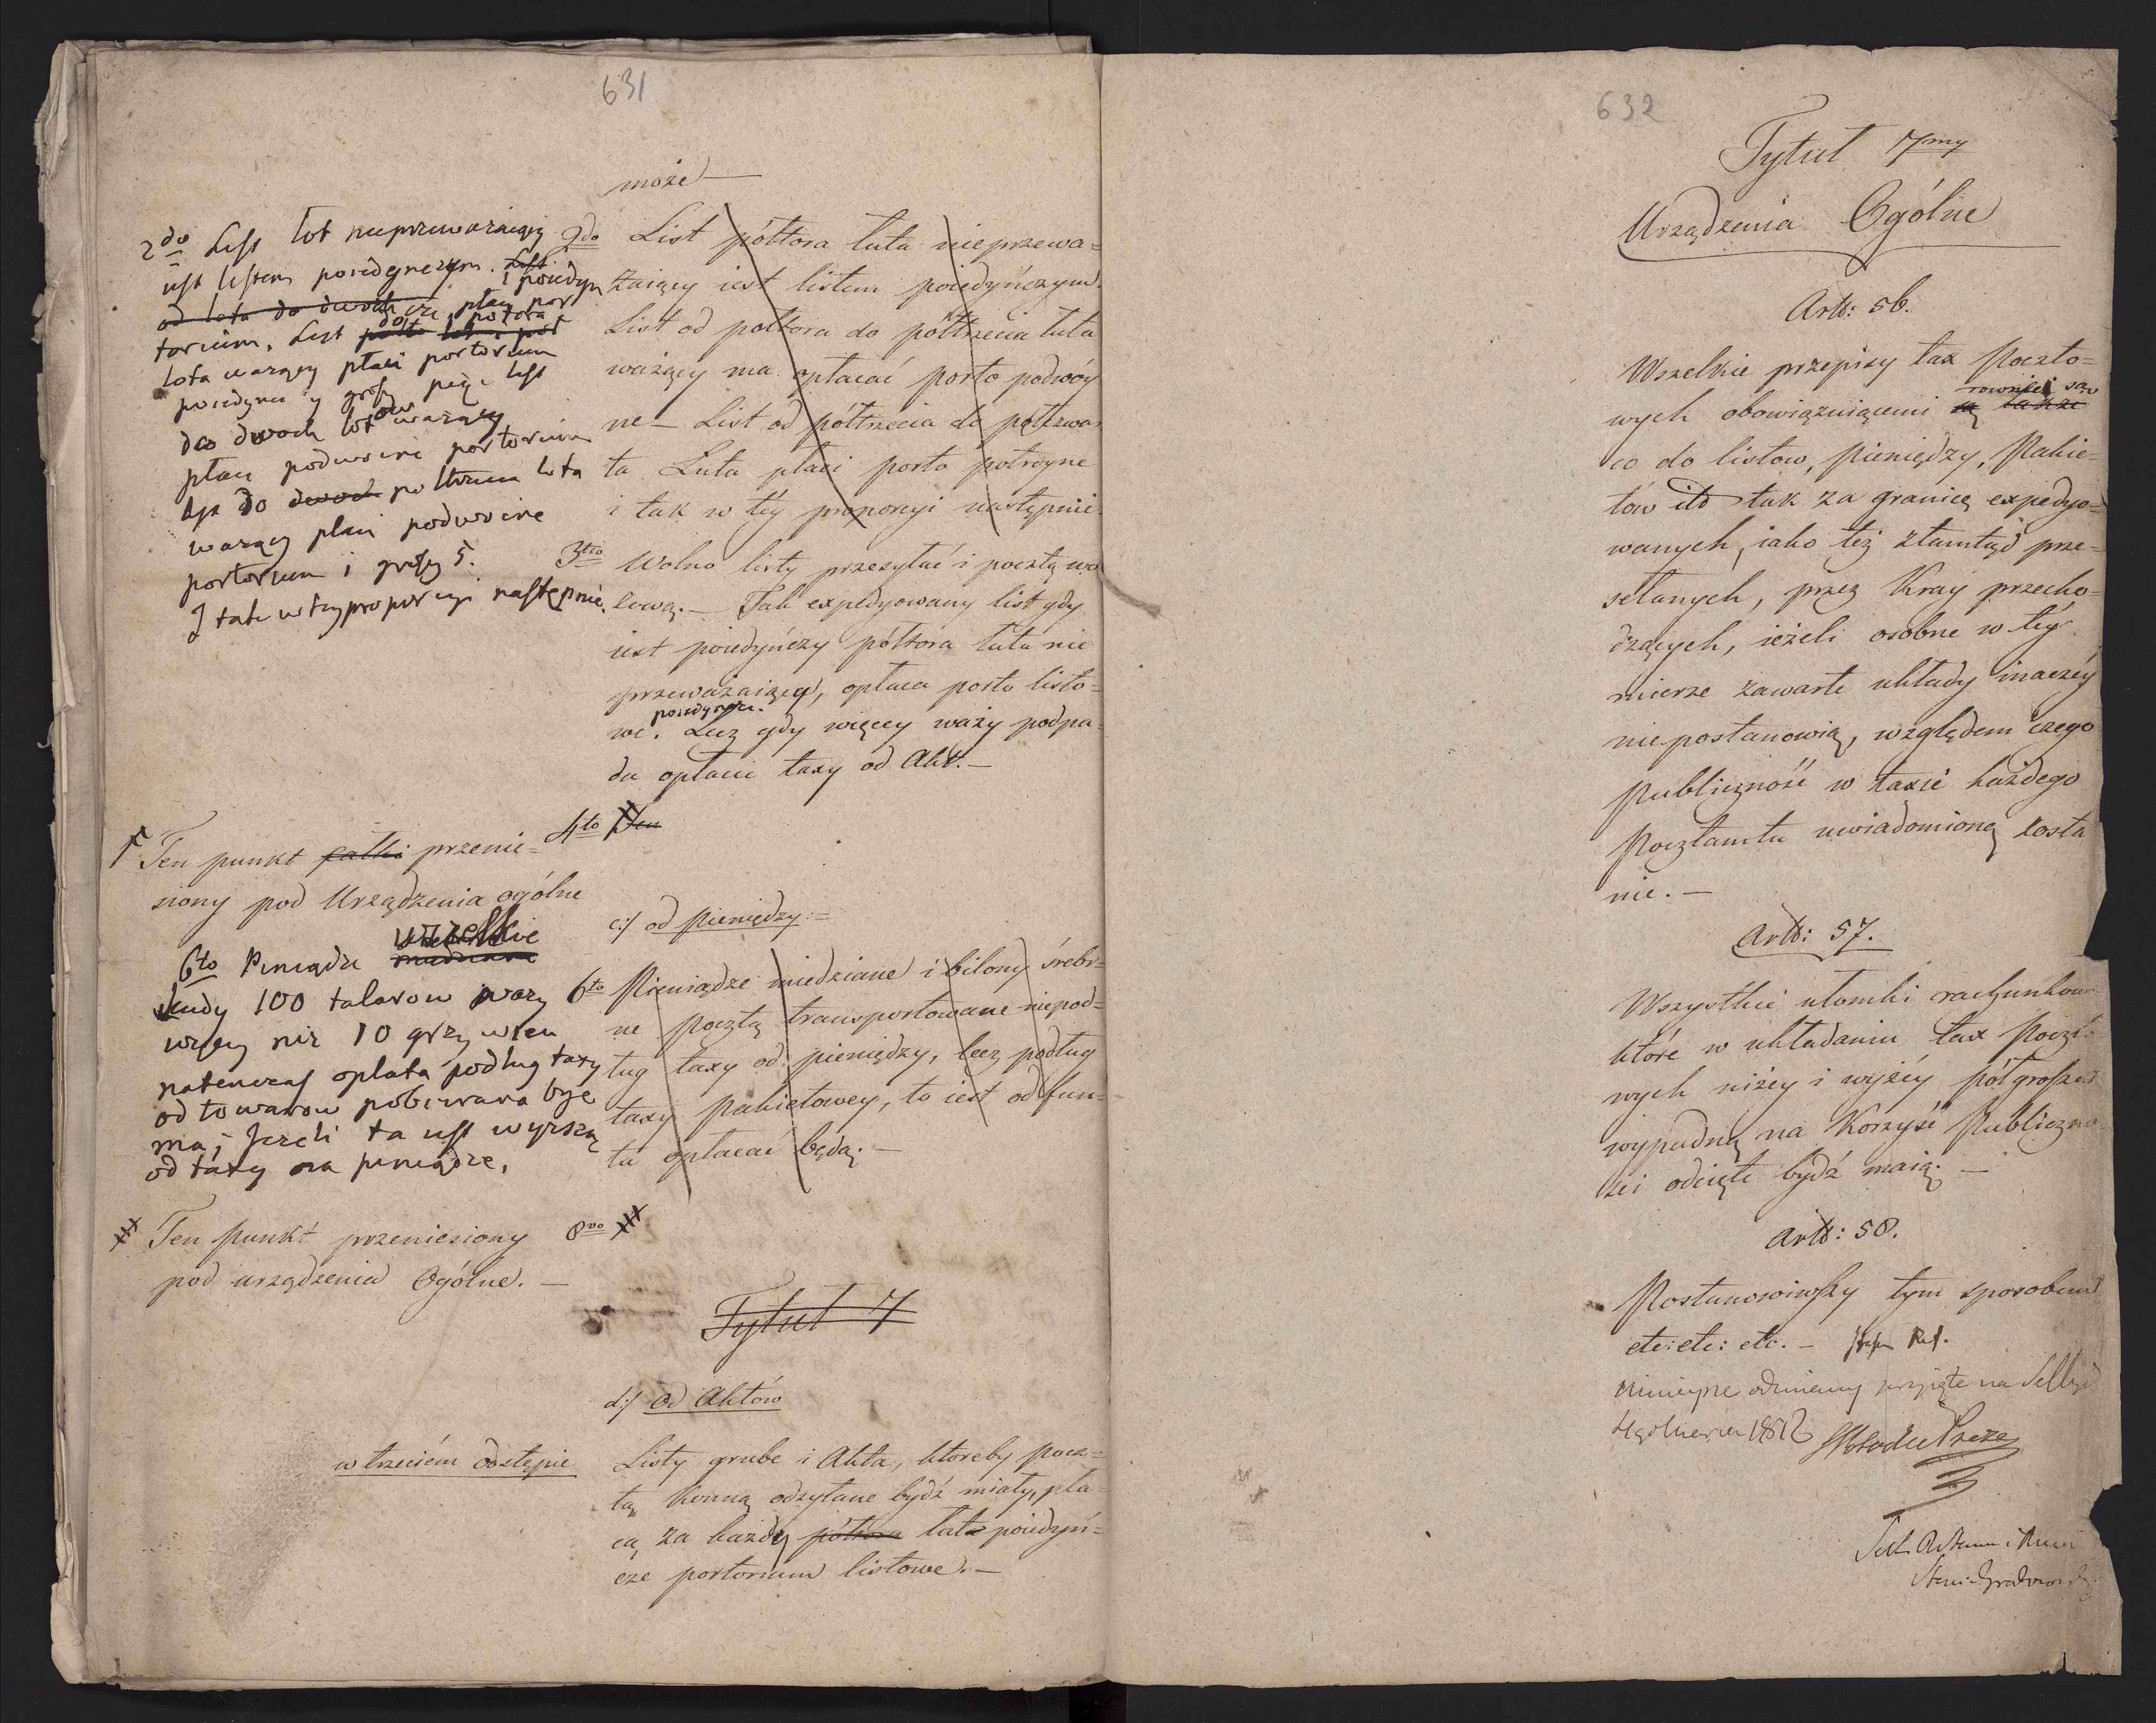 631
może —
2do List lot nieprzeważaiący
iest listem poiedynczym. List
od łota do dwoch i poiedyn
cze płaci por
torium. List do połtora
łota ważący płaci portorium
poiedyncze y groszy pięć List
do dwoch łotow ważący
płaci podwoine portorium
List do dwoch połtrzecia łota
ważący płaci podwoine
portorium i groszy 5.
I tak w tey proporcyi następnie.
2do List półtora łuta nieprzewa=
żaiący iest listem poiedyńczym.
List od półtora do półtrzecia łuta
ważący ma opłacać porto podwóy
ne — List od półtrzecia do półczwar
ta Łuta płaci porto potroyne
i tak w téy proporcyi następnie.
3tio Wolno listy przesyłać i pocztą wo
zową. — Tak expedyowany list gdy
iest poiedyńczy półtora łuta nie
przeważaiący, opłaca porto listo=
we poiedyncze. Lecz gdy więcey waży podpa=
da opłacie taxy od Akt. —
Ten punkt całki przenie=
siony pod Urządzenia ogólne
4to Ten
c:/ od Pieniędzy:=
6to Pieniądze wszelkie
kiedy 100 talarow waży
więcy niż 10 grzywien
natenczas opłata podług taxy
od towarow pobierana być
ma; Jeżeli ta iest wyższą
od taxy na pieniądze.
6to Pieniądze miedziane i bilony śrebr=
ne pocztą transportowane niepod=
ług taxy od pieniędzy, lecz podług
taxy Pakietowey, to iest od fun=
ta opłacać będą. —
Ten punkt przeniesiony
pod urządzenia Ogólne. —
8vo
Tytuł 7
d:/ Od Aktów
w trzeciém odstępie
Listy grube i Akta, ktoreby pocz=
tą konną odsyłane bydź miały, pła=
cą za każdy półtora łut poiedyń=
cze portorium listowe. —
632
Tytuł 7my
Urządzenia Ogólne
Artt: 56.
Wszelkie przepisy tax Poczto=
wych obowiązuiącemi są także rownież są
co do listow, pieniędzy, Pakie=
tów itd tak za granicę expedyo=
wanych, iako też ztamtąd prze=
sełanych, przez Kray przecho=
dzących, ieżeli osobne w téy
mierze zawarte układy inaczéy
niepostanowią, względem czego
Publiczność w taxie każdego
Pocztamtu uwiadomioną zosta
nie. —
Artt: 57.
Wszystkie ułomki rachunkowe
które w układaniu tax Poczto
wych niżey i wyżéy półgrosza
wypadną na Korzyść Publiczno
ści odcięte bydź maią. —
Artt: 58.
Postanowiwszy tym sposobem
etc: etc: etc. — Ref.
Ninieysze odmiany przyięte na
1812